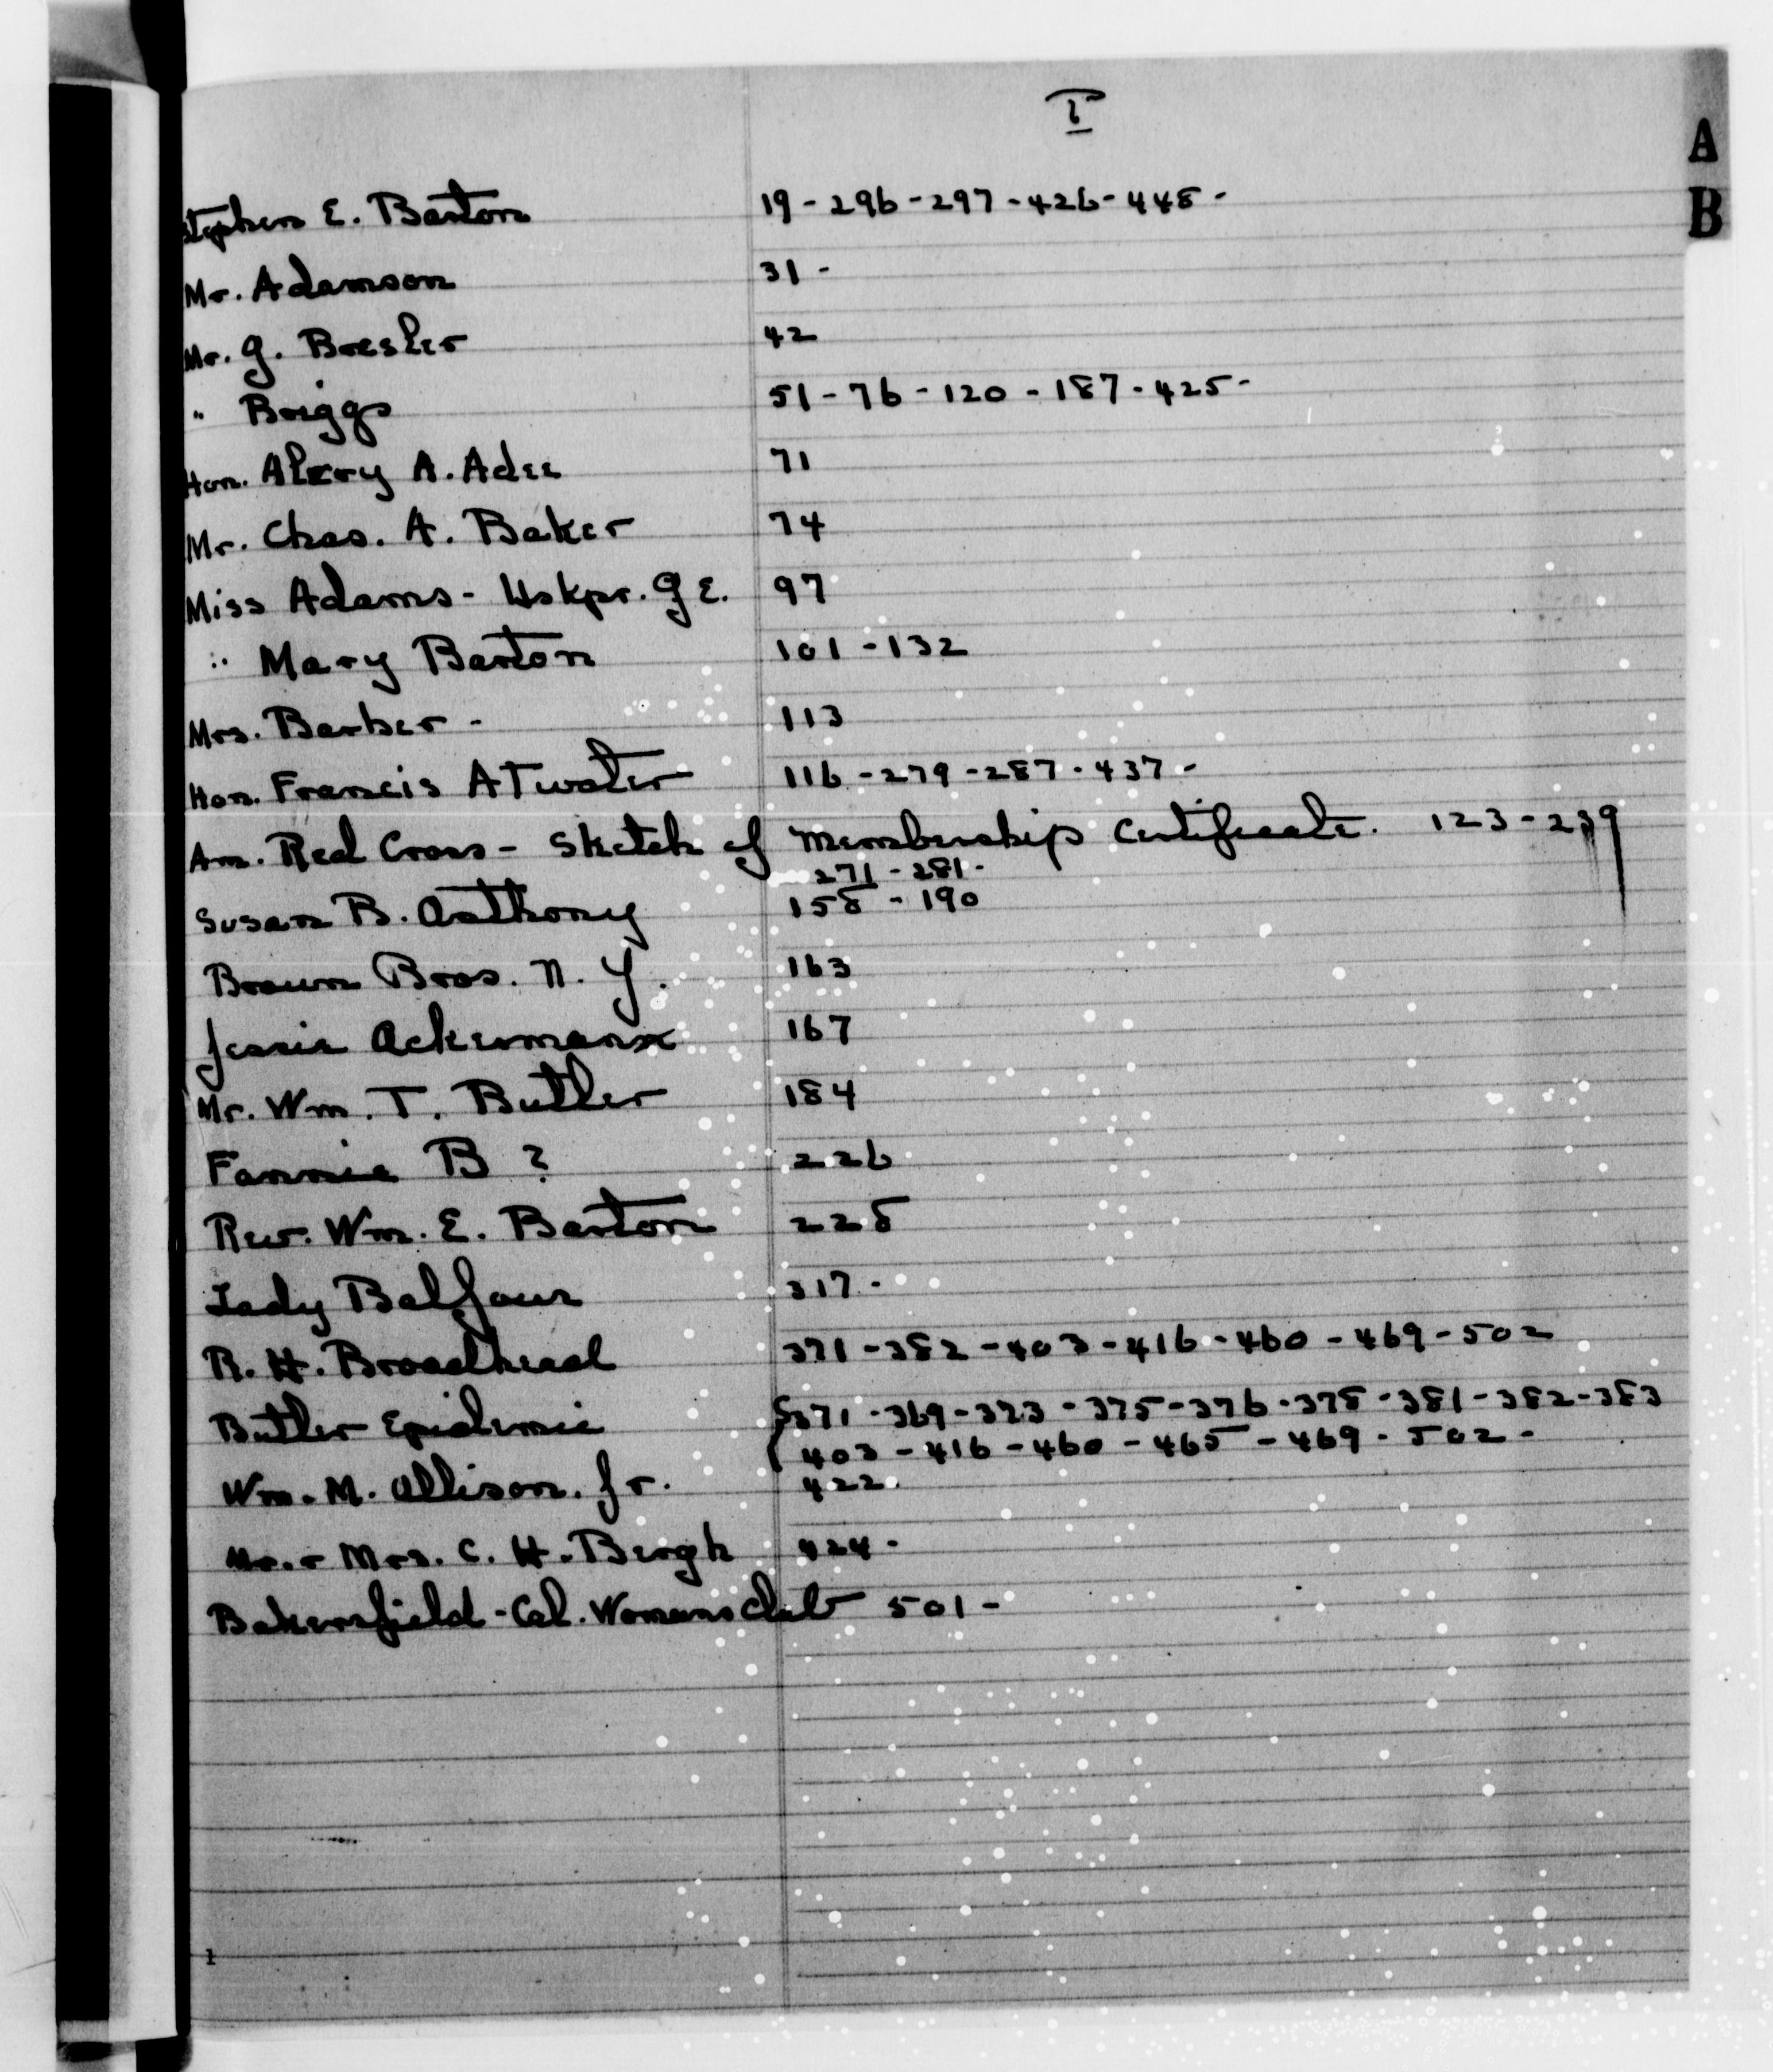 I
A
B
Stephen E. Barton 19 - 296 - 297 - 426 - 448 -
Mr. Adamson 31 -
Mr. G. Bresler 42
" Briggs 51 - 76 - 120 - 187 - 425 -
Hon. Alvey A. Adee 71
Mr. Chas. A. Baker 74
Miss Adams - Hskpr. G E. 97
" Mary Barton 101 - 132
Mrs. Barker - 113
Hon. Francis ATwater 116 - 279 - 287 - 437 -
Am. Red Cross - Sketch of Membership Certificate. 123 - 239
271 - 281 -
Susan B. Anthony 158 - 190
Brown Bros. N. Y. 163
Jessie Ackermann 167
Mr. Wm. T. Butler 184
Fannie B ? 226
Rev. Wm. E. Barton 228
Lady Balfour 317 -
R. H. Broadhead 371 - 382 - 403 - 416 - 460 - 469 - 502
Butler Epidemic 371 - 369 - 373 - 375 - 376 - 378 - 381 - 382 - 383
403 - 416 - 460 - 465 - 469 - 502 -
Wm. M. Allison. Jr. 422.
Mr. & Mrs. C. H. Bergh 424 -
Bakersfield - Cal. Womans Club 501 -
1